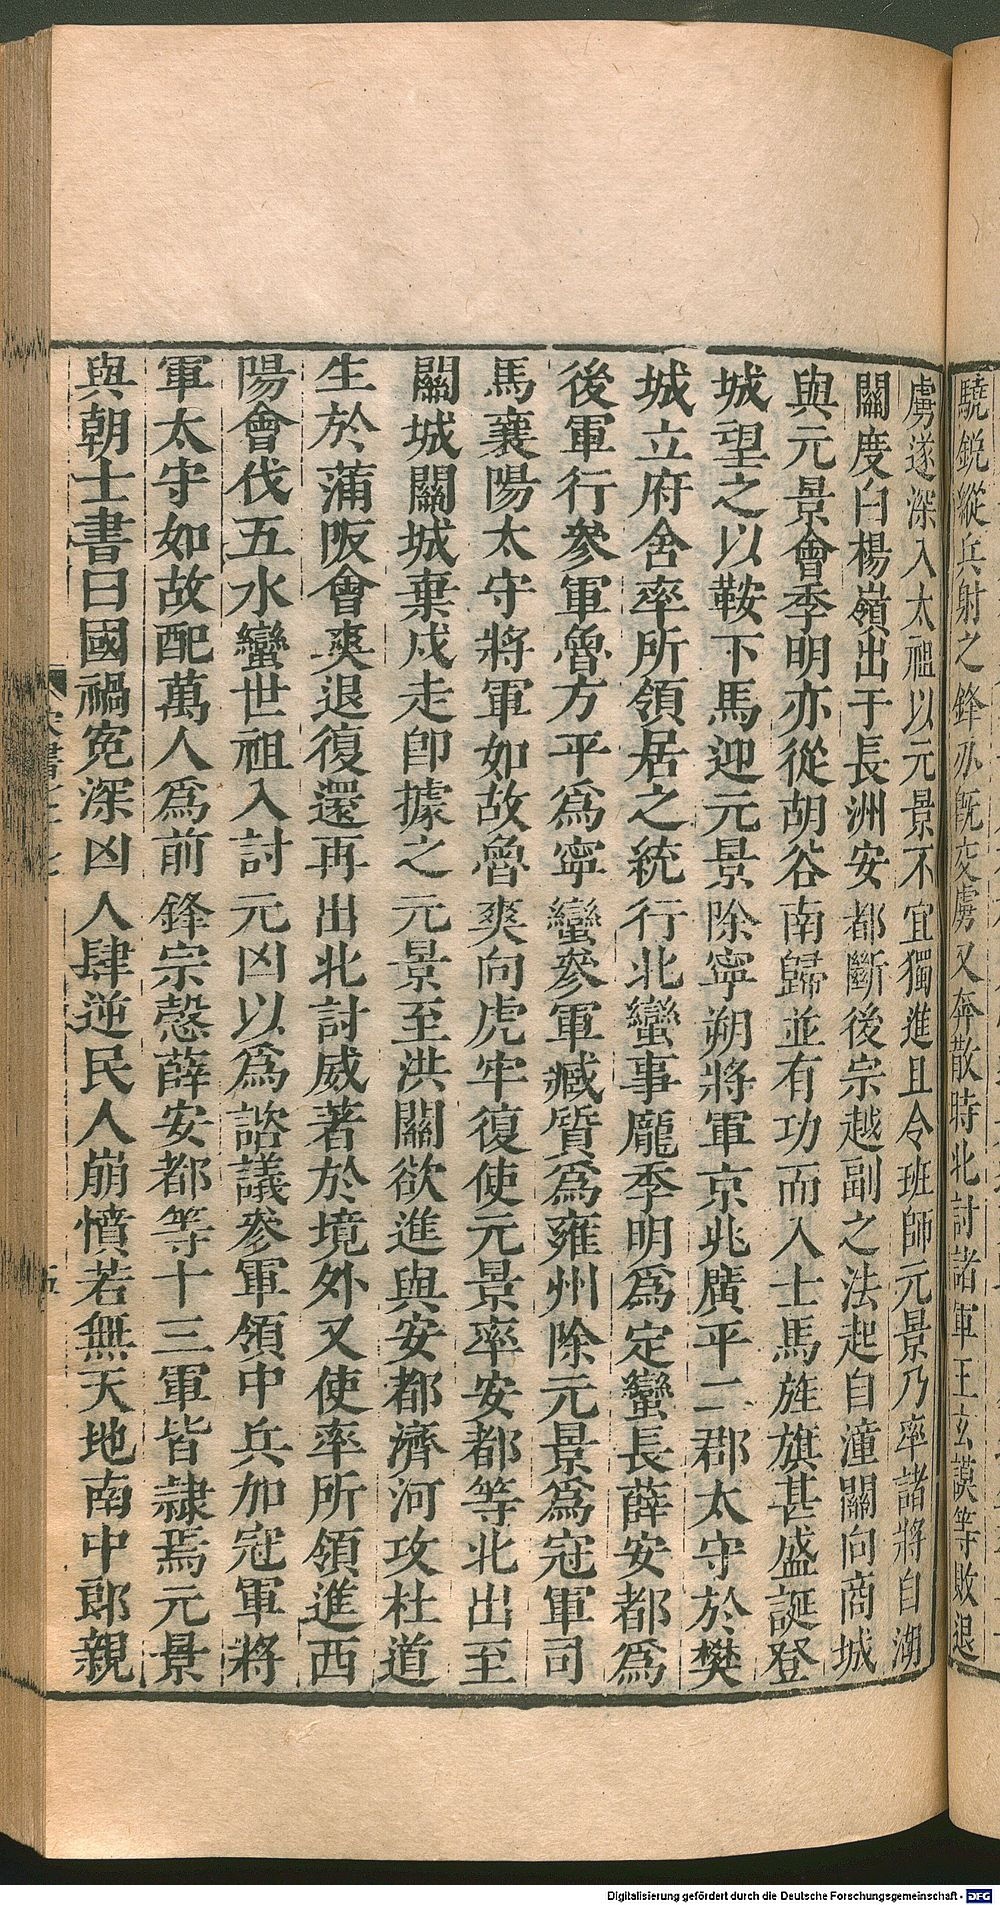 驍鋭縱兵射之鋒亦既交虜又奔散時北討諸軍王玄謨等敗退
虜遂深入太祖以元景不宜獨進且令班師元景乃率諸將自湖
關度白楊嶺出于長洲安都斷後宗越副之法起自潼關向商城
與元景會季明亦從胡谷南歸並有功而入士馬旌旗甚盛誕登
城望之以鞍下馬迎元景除寧朔將軍京兆廣平二郡太守於樊
城立府舍率所領居之統行北蠻事龐季明為定蠻長薛安都為
後軍行參軍魯方平為寧蠻參軍臧質為雍州除元景為冠軍司
馬襄陽太守將軍如故魯爽向虎牢復使元景率安都等北出至
關城關城棄戍走即據之元景至洪關欲進與安都濟河攻杜道
生於蒲阪會爽退復還再出北討威著於境外又使率所領進西
陽會伐五水蠻世祖入討元凶以為諮議參軍領中兵加冠軍將
軍太守如故配萬人為前鋒宗慤薛安都等十三軍皆隷焉元景
與朝士書曰國禍冤深凶人肆逆民人崩憤若無天地南中郎親
Digitalisierung gefördert durch die Deutsche Forschungsgemeinschaft - DFG